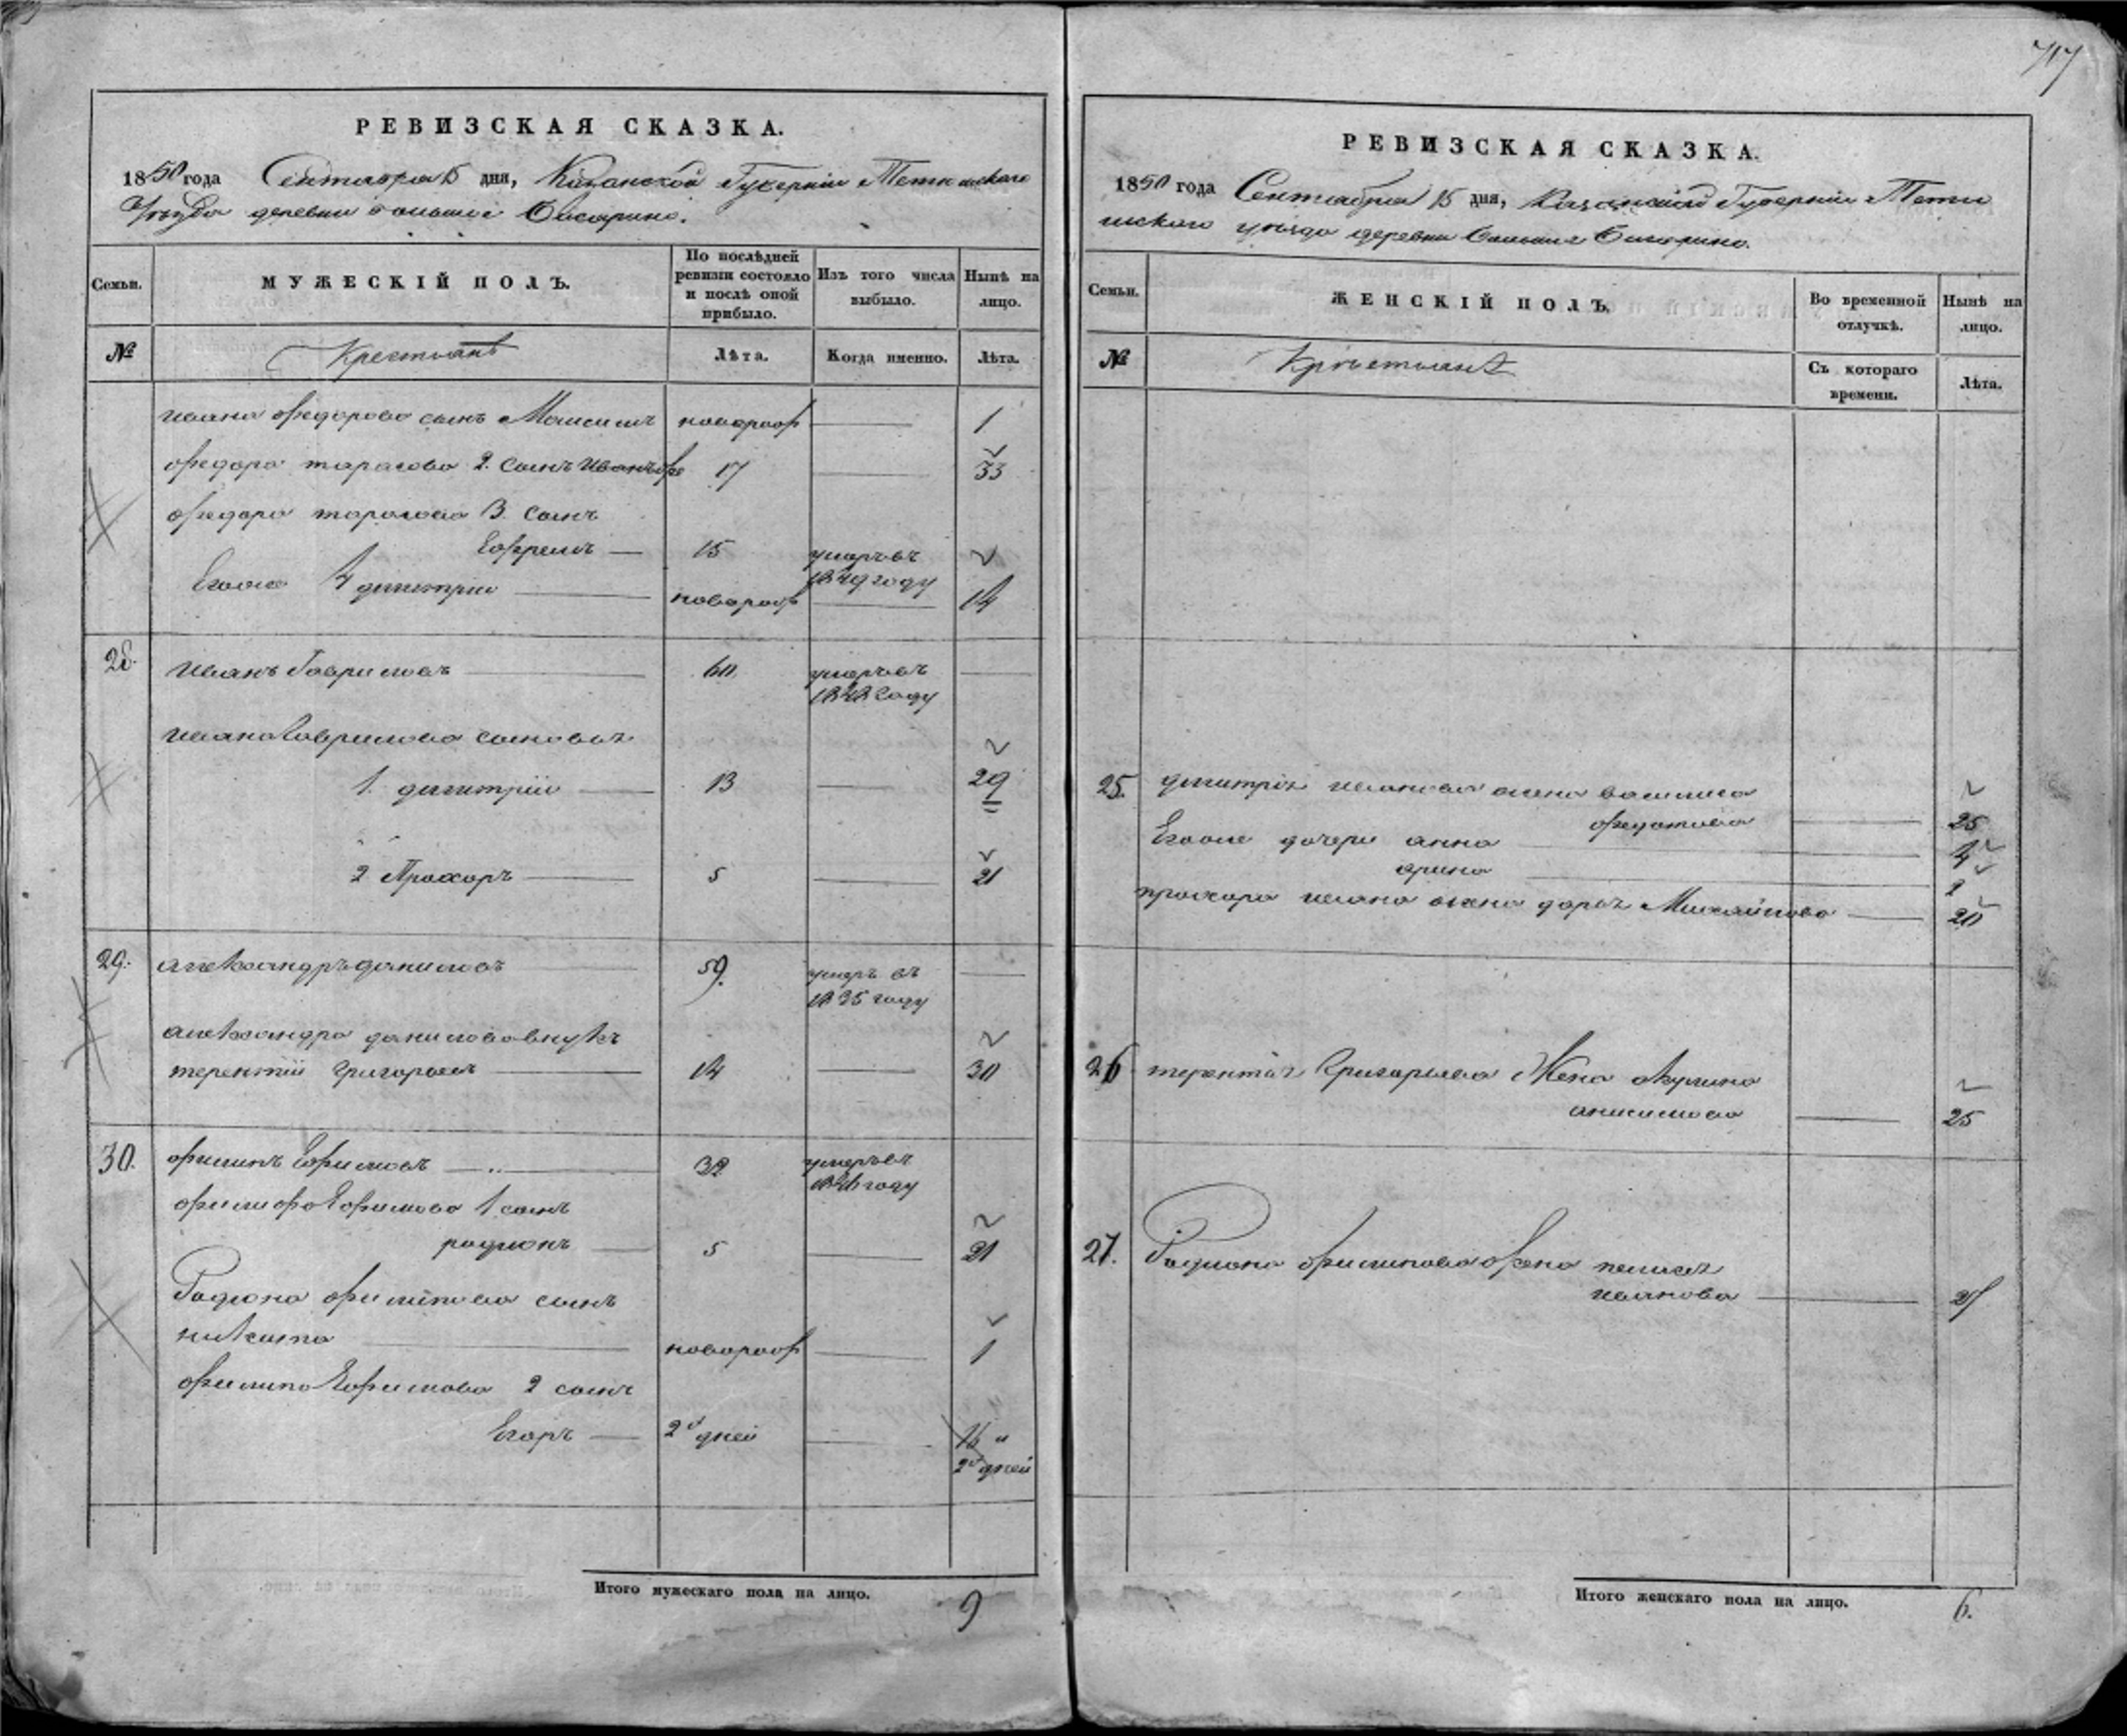 717
РЕВИЗСКАЯ СКАЗКА.
1850 года Сентября 15 дня, Казанской Губернии Тетюшскаго
Уѣзда деревни большое Бисарино.
Семьи.
МУЖЕСКІЙ ПОЛЪ.
По послѣдней ревизіи состояло и послѣ оной прибыло.
Изъ того числа выбыло.
Нынѣ на лицо.
№
Крестьянъ
Лѣта.
Когда именно.
Лѣта.
Ивана федорова сынъ Максимъ новорож 1
федора тарасова 2. сынъ Иванъ 17 33
федора тарасова 3. сынъ
Ефремъ 15 умеръ въ
1849 году
Егоже 4 дмитріи новорож 14
28. Иванъ Гавриловъ 60 умеръ въ
1848 году
Ивана Гаврилова сыновья
1. дмитрій 13 29
2 Прохоръ 5 21
29. александръ даниловъ 59. умеръ въ
1835 году
александра данилова внукъ
терентій Григорьевъ 14 30
30. филипъ Ефимовъ 32 умеръ въ
году
филипа Ефимова 1 сынъ
родионъ 5 21
Родиона филипова сынъ
никита новорож 1
филипа Ефимова 2 сынъ
Егоръ 2 дней 16
2 дней
Итого мужескаго пола на лицо. 9
РЕВИЗСКАЯ СКАЗКА.
1850 года Сентября 15 дня, Казанской Губерніи Тетю
шскаго уѣзда деревни большое Бисарино.
Семьи.
ЖЕНСКІЙ ПОЛЪ.
Во временной отлучкѣ.
Нынѣ на лицо.
№
Крестьянъ
Съ котораго времени.
Лѣта.
25. дмитрія иванова жена василиса
федотова 25
Егоже дочери анна 4
арина 1
прохора ивана жена дарья Михайлова 20
26 терентія Григорьева Жена акулина
анисимова 25
27. Родиона филипова жена пелагея
иванова 21
Итого женскаго пола на лицо. 6.